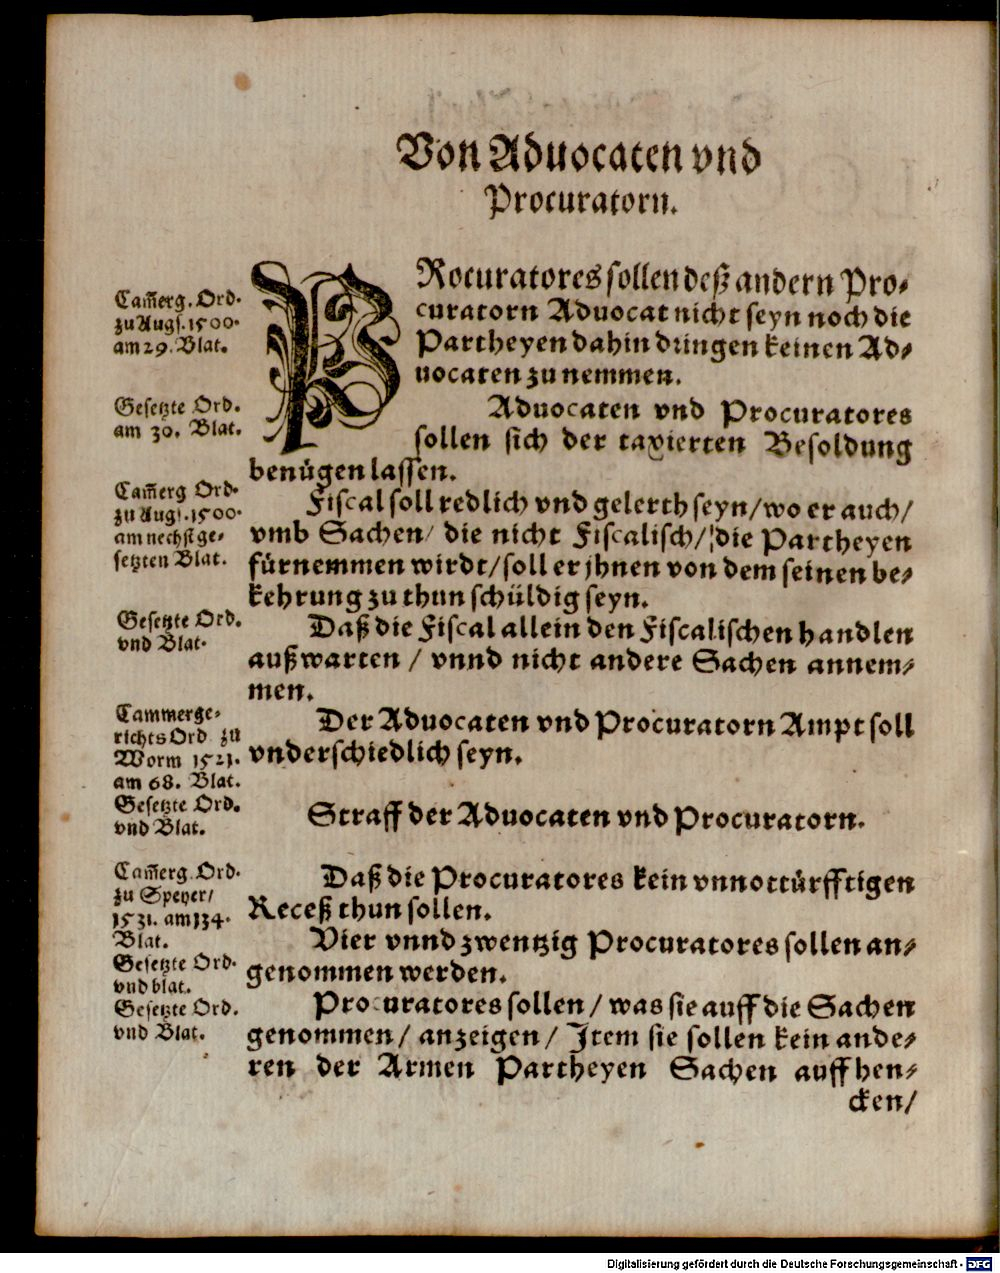 Von Aduocaten vnd
Procuratorn.
Cam̄erg. Ord.
zu Augs. 1500.
am 29. Blat.
PRocuratores sollen deß andern Pro-
curatorn Aduocat nicht seyn noch die
Partheyen dahin dringen keinen Ad-
uocaten zu nemmen.
Gesetzte Ord.
am 30. Blat.
Aduocaten vnd Procuratores
sollen sich der taxierten Besoldung
benügen lassen.
Cam̄erg Ord.
zu Augs. 1500.
am nechst ge-
setzten Blat.
Fiscal soll redlich vnd gelerth seyn/ wo er auch/
vmb Sachen/ die nicht Fiscalisch/ die Partheyen
fürnemmen wirdt/ soll er jhnen von dem seinen be-
kehrung zu thun schüldig seyn.
Gesetzte Ord.
vnd Blat.
Daß die Fiscal allein den Fiscalischen handlen
außwarten / vnnd nicht andere Sachen annem-
men.
Cammerge-
richts Ord. zu
Worm 1521.
am 68. Blat.
Der Aduocaten vnd Procuratorn Ampt soll
vnderschiedlich seyn.
Gesetzte Ord.
vnd Blat.
Straff der Aduocaten vnd Procuratorn.
Cam̄erg. Ord.
zu Speyer/
1531. am 134.
Blat.
Daß die Procuratores kein vnnottürfftigen
Receß thun sollen.
Gesetzte Ord.
vnd blat.
Vier vnnd zwentzig Procuratores sollen an-
genommen werden.
Gesetzte Ord.
vnd Blat.
Procuratores sollen / was sie auff die Sachen
genommen/ anzeigen/ Jtem sie sollen kein ande-
ren der Armen Partheyen Sachen auff hen-
cken/
Digitalisierung gefördert durch die Deutsche Forschungsgemeinschaft - DFG